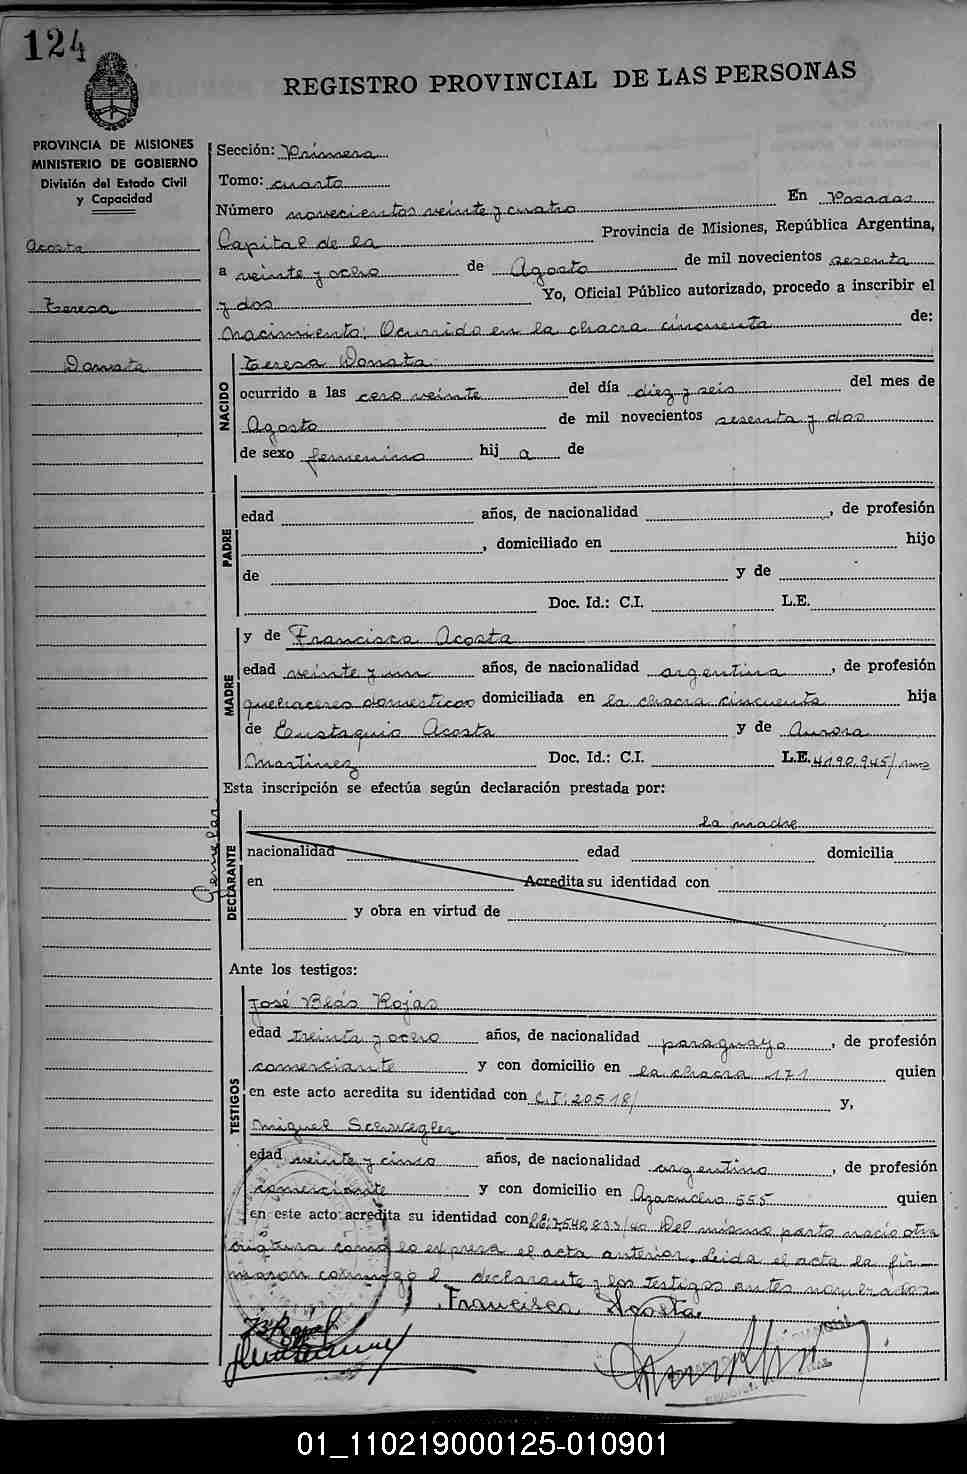 124
REGISTRO PROVINCIAL DE LAS PERSONAS
PROVINCIA DE MISIONES
MINISTERIO DE GOBIERNO
División del Estado Civil
y Capacidad
Acosta
Teresa
Donata
Sección: Primera
Tomo: cuarto
Número novecientos veinte y cuatro En Posadas
Capital de la Provincia de Misiones, República Argentina,
a veinte y ocho de Agosto de mil novecientos sesenta
y dos Yo, Oficial Público autorizado, procedo a inscribir el
nacimiento: Ocurrido en la chacra cincuenta de:
NACIDO
Teresa Donata
ocurrido a las cero veinte del día diez y seis del mes de
Agosto de mil novecientos sesenta y dos
de sexo femenino hij a de
PADRE
edad años, de nacionalidad , de profesión
, domiciliado en hijo
de y de
Doc. Id.: C.I. L.E.
MADRE
y de Francisca Acosta
edad veinte y un años, de nacionalidad argentina , de profesión
quehaceres domesticos domiciliada en la chacra cincuenta hija
de Eustaquio Acosta y de Aurora
Martinez Doc. Id.: C.I. L.E. 4190.945/
Esta inscripción se efectúa según declaración prestada por:
Gemelar
DECLARANTE
la madre
nacionalidad edad domicilia
en Acredita su identidad con
y obra en virtud de
Ante los testigos:
TESTIGOS
José Blás Rojas
edad treinta y ocho años, de nacionalidad paraguayo , de profesión
comerciante y con domicilio en la chacra 171 quien
en este acto acredita su identidad con C.I. 20518/ y,
Miguel Schwegler
edad veinte y cinco años, de nacionalidad argentino , de profesión
comerciante y con domicilio en Ayacucho 555 quien
en este acto acredita su identidad con Del mismo parto nació otra
criatura como lo expresa el acta anterior. Leida el acta la fir-
maron conmigo el declarante y los testigos antes nombrados
Francisca Acosta
01_110219000125-010901